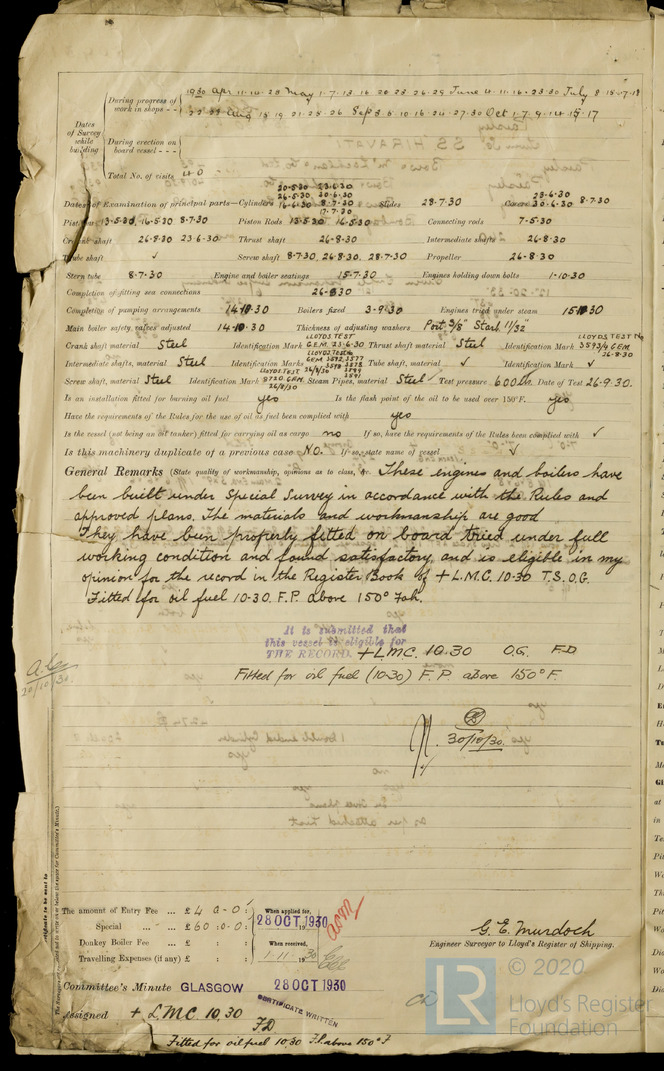 1930 Apr 11. 14. 28 May 1. 7. 13. 16. 20. 23. 26. 29. June 4. 11. 16. 23. 30 July 8. 15.
During progress of work in shops - -
Aug 15 19. 21. 25. 26 Sep 3. 8. 10. 16. 24. 27. 30 Oct 1. 7. 9. 14. 15. 17
Dates of Survey while building
During erection on board vessel - - -
Total No. of visits 40
Dates of Examination of principal parts—Cylinders 20-5-30 23-6-30 26-5-30 30-6-30 16-6-30 8-7-30 17-7-30 Slides 28-7-30 Covers 23-6-30 30-6-30 8-7-30
Pistons 13-5-30, 16-5-30 8-7-30 Piston Rods 13-5-30 16-5-30 Connecting rods 7-5-30
Crank shaft 26-8-30 23-6-30 Thrust shaft 26-8-30 Intermediate shafts 26-8-30
Tube shaft ✓ Screw shaft 8-7-30, 26-8-30, 28-7-30 Propeller 26-8-30
Stern tube 8-7-30 Engine and boiler seatings 15-7-30 Engines holding down bolts 1-10-30
Completion of fitting sea connections 26-8-30
Completion of pumping arrangements 14-10-30 Boilers fixed 3-9-30 Engines tried under steam 15-10-30
Main boiler safety valves adjusted 14-10-30 Thickness of adjusting washers Port 3/8" Starb 11/32"
Crank shaft material Steel Identification Mark LLOYDS TEST G.E.M. 23-6-30 Thrust shaft material Steel Identification Mark LLOYDS TEST No 3593/4 G.E.M. 26-8-30
Intermediate shafts, material Steel Identification Marks LLOYDS TEST No Tube shaft, material ✓ Identification Mark ✓
Screw shaft, material Steel Identification Mark LLOYDS TEST 8720 G.E.M. 26/8/30 Steam Pipes, material Steel Test pressure 600 lb. Date of Test 26-9-30.
Is an installation fitted for burning oil fuel yes Is the flash point of the oil to be used over 150°F. yes
Have the requirements of the Rules for the use of oil as fuel been complied with yes
Is the vessel (not being an oil tanker) fitted for carrying oil as cargo no If so, have the requirements of the Rules been complied with ✓
Is this machinery duplicate of a previous case NO. If so, state name of vessel ✓
General Remarks (State quality of workmanship, opinions as to class, &c. These engines and boilers have
been built under Special Survey in accordance with the Rules and
approved plans. The materials and workmanship are good
They have been properly fitted on board tried under full
working condition and found satisfactory, and is eligible in my
opinion for the record in the Register Book of + L.M.C. 10-30 T.S. O.G.
Fitted for oil fuel 10-30. F.P. above 150° Fah.
It is submitted that
this vessel is eligible for
THE RECORD. + LMC. 10.30 O.G. F.D
Fitted for oil fuel (10-30) F.P. above 150° F.
20/10/30
30/10/30.
The amount of Entry Fee ... £ 4 : 0 - 0 : When applied for,
28 OCT 1930
Special ... £ 60 : 0 - 0 :
Donkey Boiler Fee ... £ : : When received,
Travelling Expenses (if any) £ : : 1-11-1930
G. E. Murdoch
Engineer Surveyor to Lloyd's Register of Shipping.
Committee's Minute GLASGOW 28 OCT 1930
CERTIFICATE WRITTEN
Assigned + LMC. 10,30
FD
Fitted for oil fuel 10.30 F.P. above 150° F
LR © 2020
Lloyd's Register
Foundation